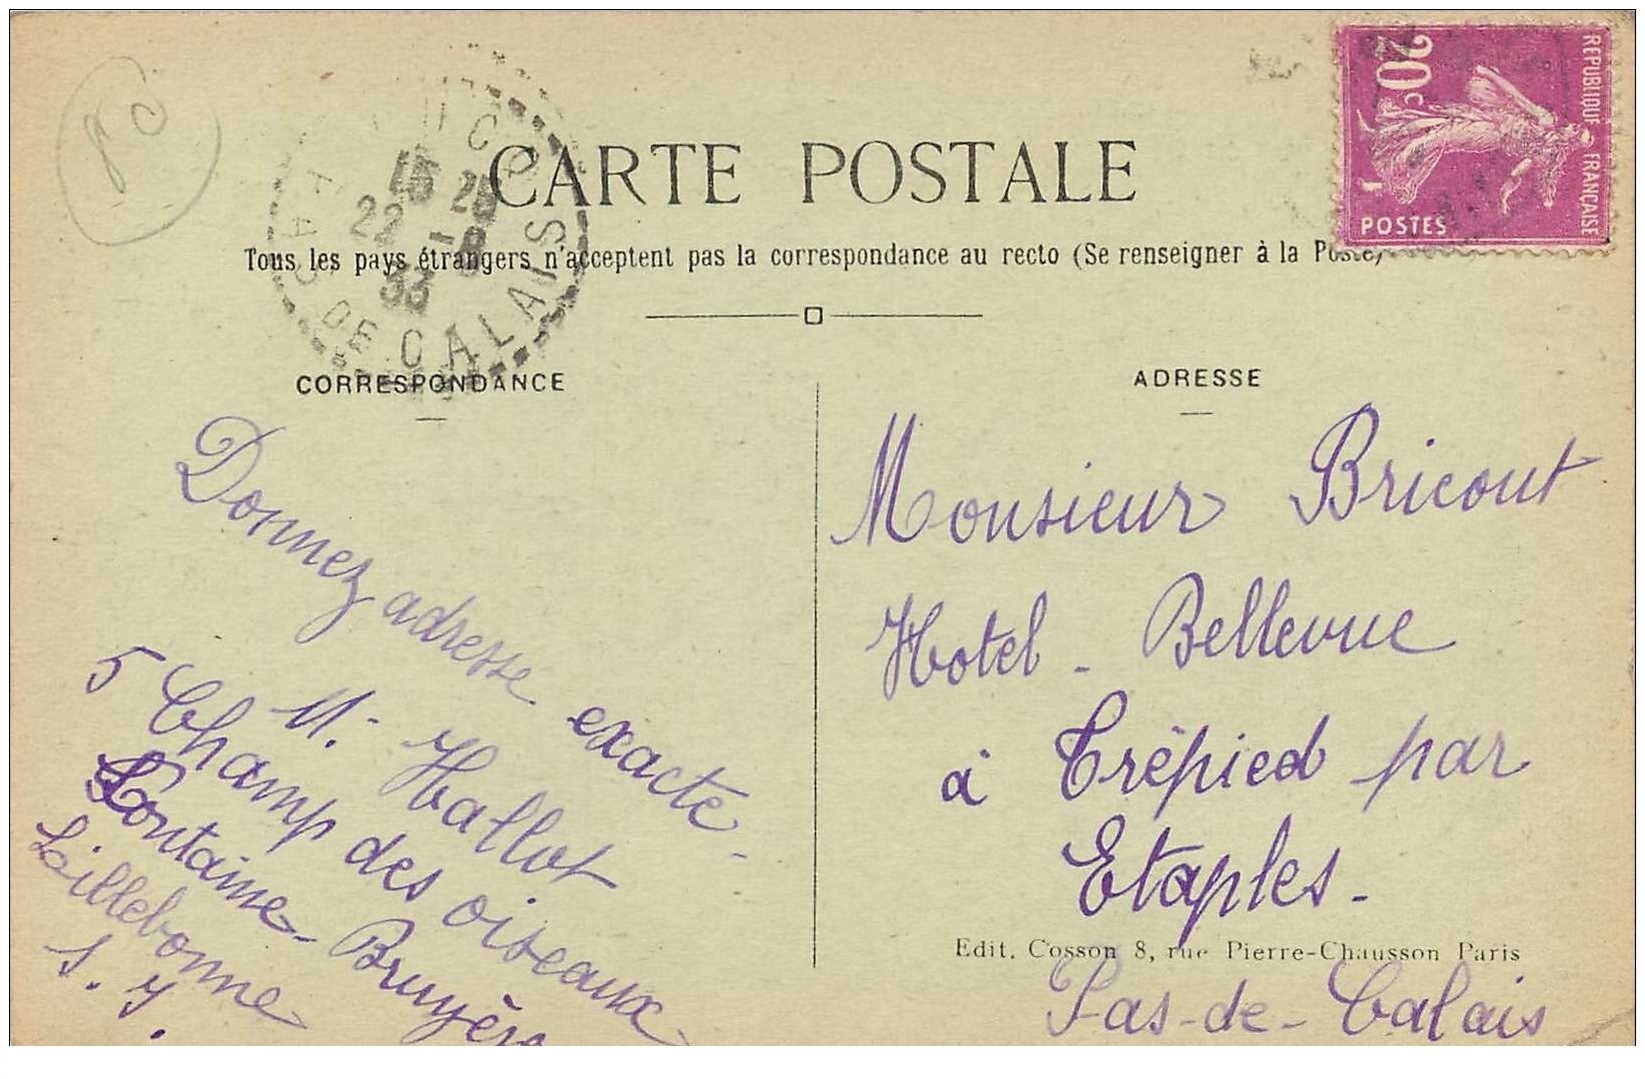 RÉPUBLIQUE FRANÇAISE
20c
POSTES
15 25
22 - 8
33
PAS DE CALAIS
CARTE POSTALE
Tous les pays étrangers n'acceptent pas la correspondance au recto (Se renseigner à la Poste)
CORRESPONDANCE
Donnez adresse exacte -
M. Hallot
5 Champ des oiseaux
Fontaine-Bruyère
Lillebonne
S. I.
ADRESSE
Monsieur Bricout
Hotel - Bellevue
à Trépied par
Etaples -
Pas-de-Calais
Edit. Cosson 8, rue Pierre-Chausson Paris